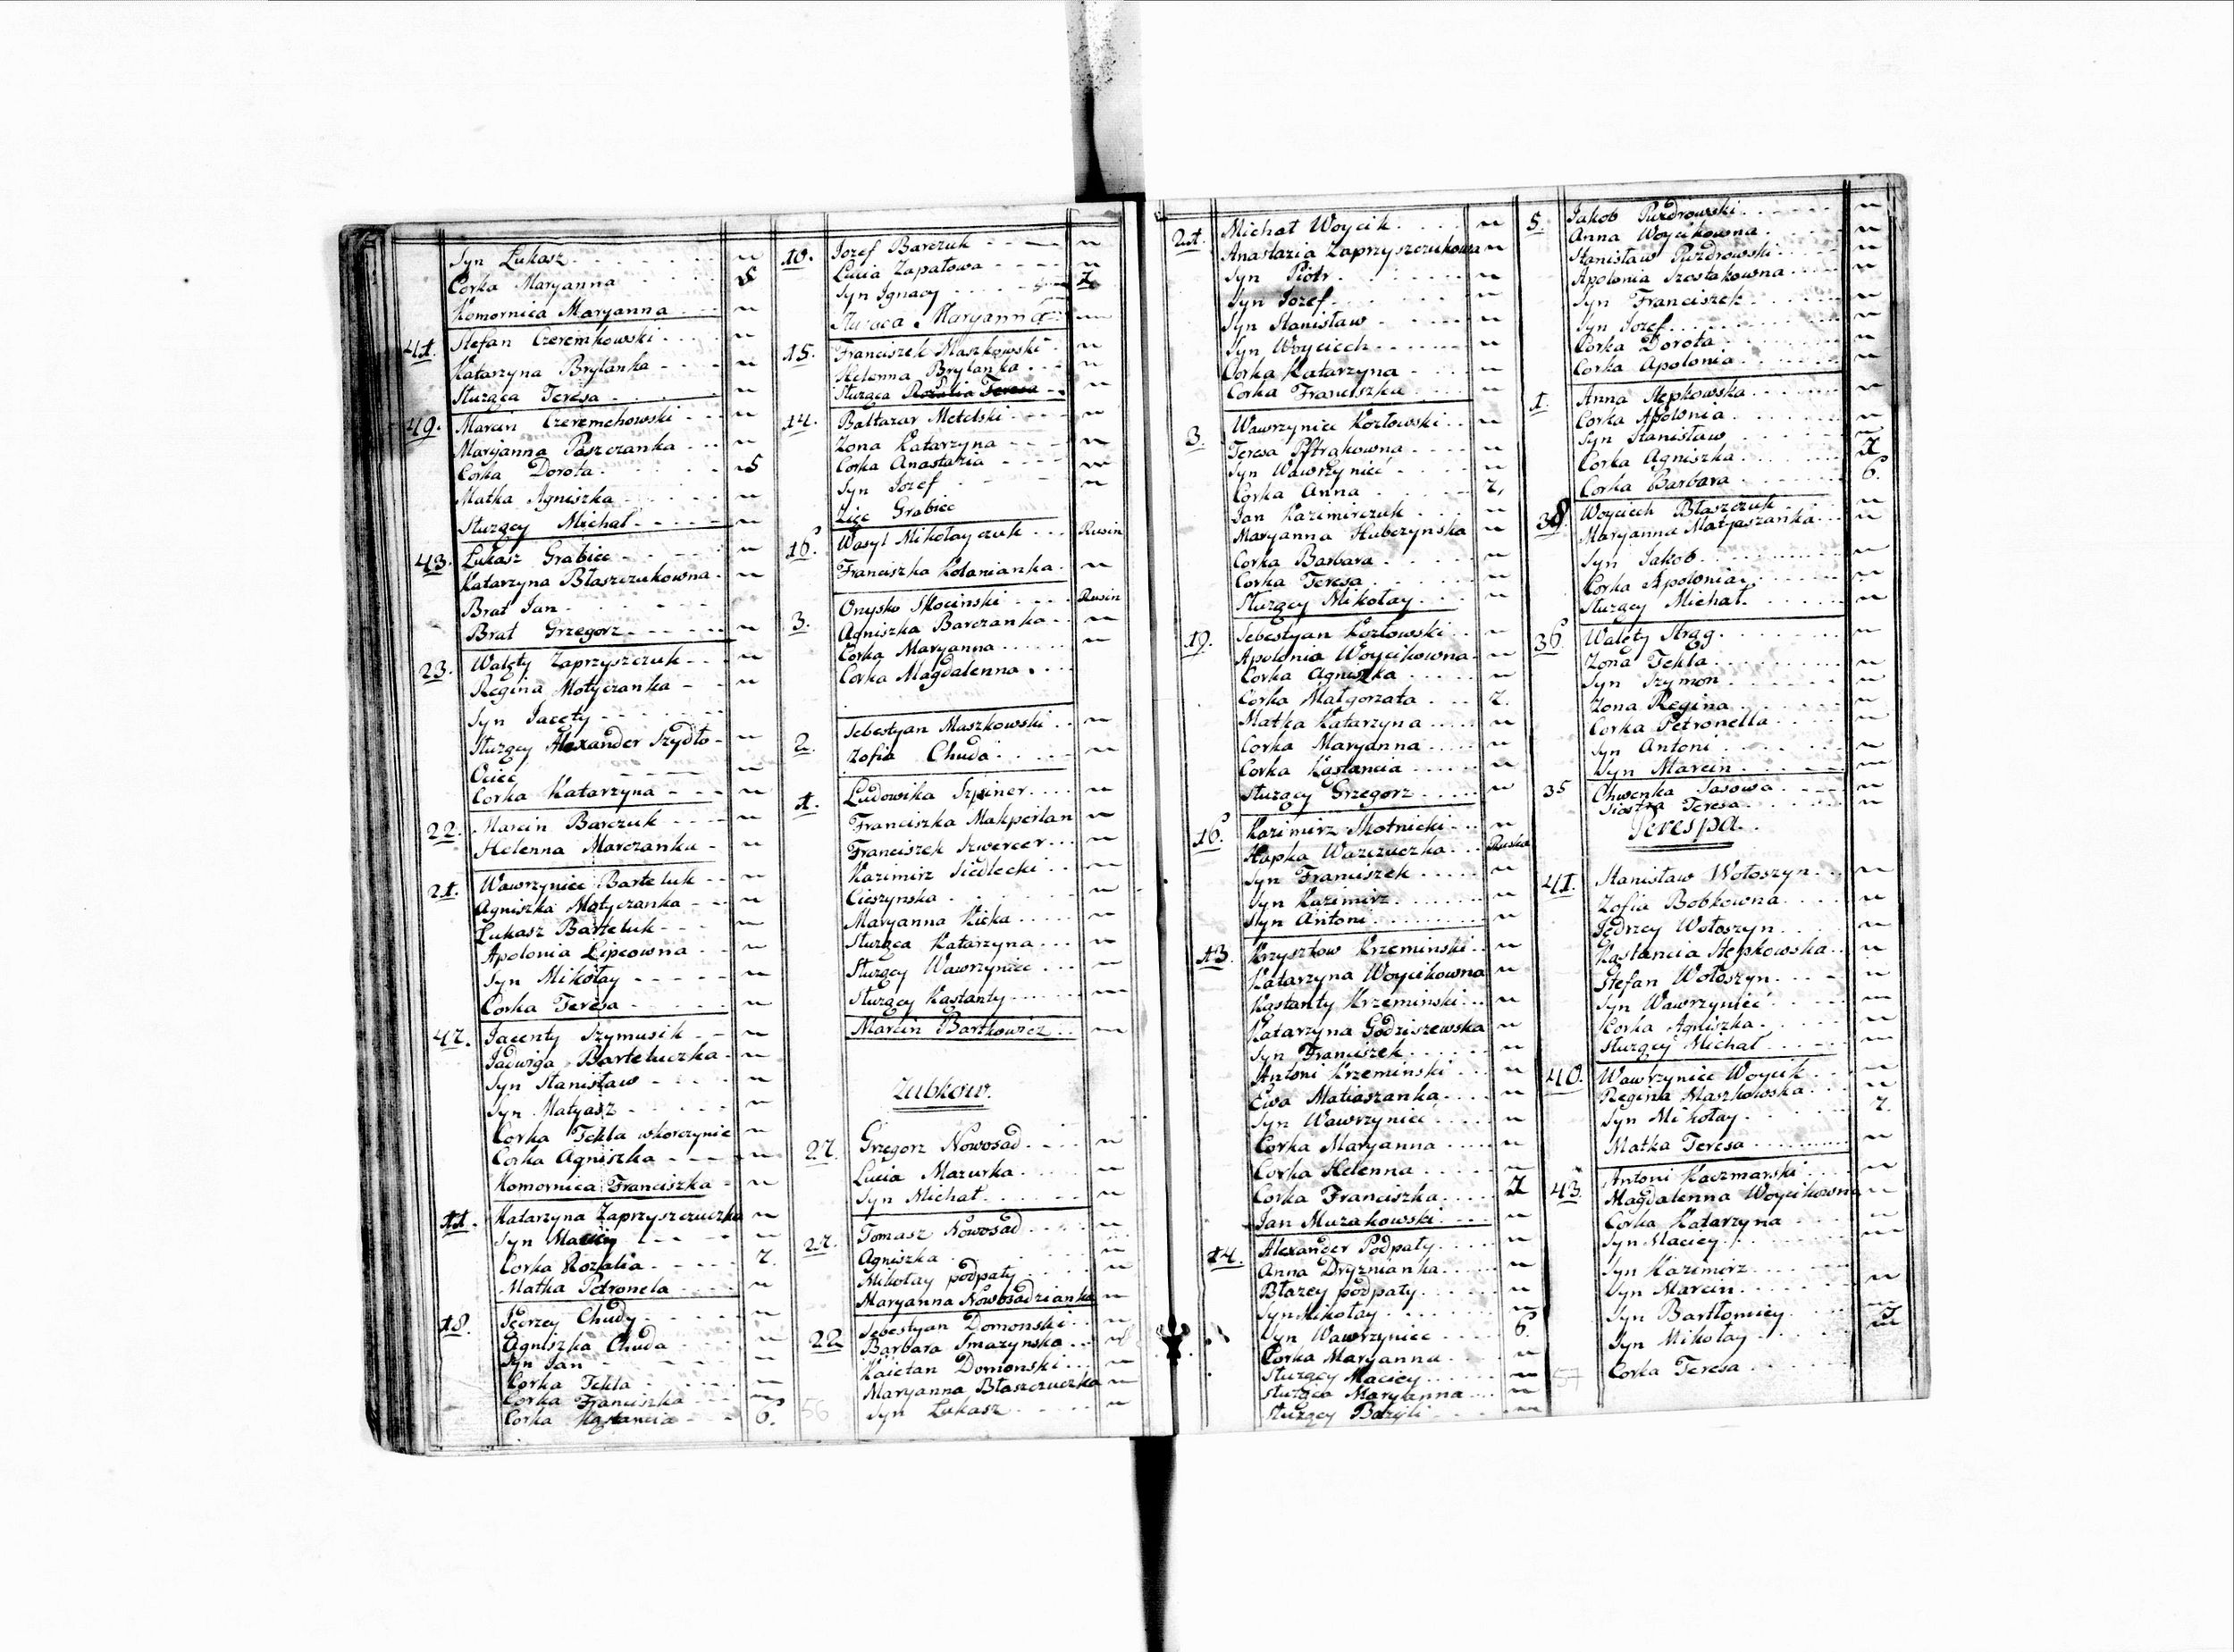 Syn Łukasz
Corka Maryanna 5
Komornica Maryanna
41. Stefan Czeremkowski
Katarzyna Brylanka
Służąca Teresa
49. Marcin Czeremchowski
Maryanna Paszczanka
Corka Dorota 5
Matka Agniszka
Służący Michał
43. Łukasz Grabiec
Katarzyna Błaszczukowna
Brat Jan
Brat Grzegorz
23. Walęty Zaprzyszczuk
Regina Motyczanka
Syn Jacęty
Służący Alexander Szydło
Ociec
Corka Katarzyna
22. Marcin Barczuk
Helenna Marczanka
21. Wawrzyniec Barteluk
Agniszka Motyczanka
Łukasz Barteluk
Apolonia Lipcowna
Syn Mikołay
Corka Teresa
42. Jacenty Szymusik
Jadwiga Barteluczka
Syn Stanisław
Syn Matyasz
Corka Tekla wkorczynie
Corka Agniszka
Komornica Franciszka
11. Katarzyna Zaprzyszczuczka
Syn Maciey
Corka Rozalia 7.
Matka Petronela
18. Jędrzey Chudy
Agniszka Chuda
Syn Jan
Corka Tekla
Corka Franciszka
Corka Kastancia 6.
10. Jozef Barczuk
Lucia Zapałowa
Syn Ignacy 7
Służąca Maryanna
15. Franciszek Maszkowski
Helenna Brylanka
Służąca Rozalia Teresa
14. Baltazar Metelski
Zona Katarzyna
Corka Anastazia
Syn Jozef
Zięc Grabiec
16. Wasyl Mikołayczuk Rusin
Franciszka Kolanianka
3. Onysko Skocinski Rusin
Agniszka Barczanka
Corka Maryanna
Corka Magdalenna
2. Sebestyan Maszkowski
Zofia Chuda
1. Ludowika Szpiner
Franciszka Makperlan
Franciszek Szwercer
Kazimirz Siedlecki
Cieszynska
Maryanna Kicka
Służąca Katarzyna
Służący Wawrzyniec
Służący Kastanty
Marcin Bartkowicz
Zubkow.
27. Grzegorz Nowosad
Lucia Mazurka
Syn Michał
27. Tomasz Nowosad
Agniszka
Mikołay podpały
Maryanna Nowosadzianka
22 Sebestyan Domonski
Barbara Smazynska
Kaietan Domonski
Maryanna Błaszczuczka
56 Syn Łukasz
21. Michał Woycik
Anastazia Zaprzyszczukowa
Syn Piotr
Syn Jozef
Syn Stanisław
Syn Woyciech
Corka Katarzyna
Corka Franciszka
3. Wawrzyniec Kozłowski
Teresa Pftrakowna
Syn Wawrzyniec
Corka Anna 7,
Jan Kazimirczuk
Maryanna Hubczynska
Corka Barbara
Corka Teresa
Służący Mikołay
19. Sebestyan Kozłowski
Apolonia Woycikowna
Corka Agniszka
Corka Małgorzata 7.
Matka Katarzyna
Corka Maryanna
Corka Kastancia
Służący Grzegorz
16. Kazimirz Skotnicki
Hapka Wazczuczka Ruska
Syn Franciszek
Syn Kazimirz
Syn Antoni
13. Krzysztow Krzeminski
Katarzyna Woycikowna
Kastanty Krzeminski
Katarzyna Godziszewska
Syn Franciszek
Antoni Krzeminski
Ewa Matiaszanka
Syn Wawrzyniec
Corka Maryanna
Corka Helenna
Corka Franciszka 7
Jan Muzakowski
14. Alexander Podpały
Anna Dryznianka
Błazey podpały
Syn Mikołay
Syn Wawrzyniec 6.
Corka Maryanna
Służący Maciey
służąca Maryanna
służący Bazyli
5. Jakob Puzdrowski
Anna Woycikowna
Stanisław Puzdrowski
Apolonia Szostakowna
Syn Franciszek
Syn Jozef
Corka Dorota
Corka Apolonia
1. Anna Stepkowska
Corka Apolonia
Syn Stanisław
Corka Agniszka 7
Corka Barbara 6.
38. Woyciech Błaszczuk
Maryanna Matyaszanka
Syn Jakob
Corka Apolonia
Służący Michał
36. Walęty Strąg
Zona Tekla
Syn Szymon
Zona Regina
Corka Petronella
Syn Antoni
Syn Marcin
35 Chwenka Sasowa
Siostra Teresa
Perespa.
41. Stanisław Wołoszyn
Zofia Bobkowna
Jędrzey Wołoszyn
Kastancia Stepkowska
Stefan Wołoszyn
Syn Wawrzyniec
Corka Agniszka
służący Michał
40. Wawrzyniec Woycik
Regina Maszkowska
Syn Mikołay 7.
Matka Teresa
43. Antoni Kaczmarski
Magdalenna Woycikowna
Corka Katarzyna
Syn Maciey
Syn Kazimirz
Syn Marcin
Syn Bartłomiey
Syn Mikołay 7
57 Corka Teresa